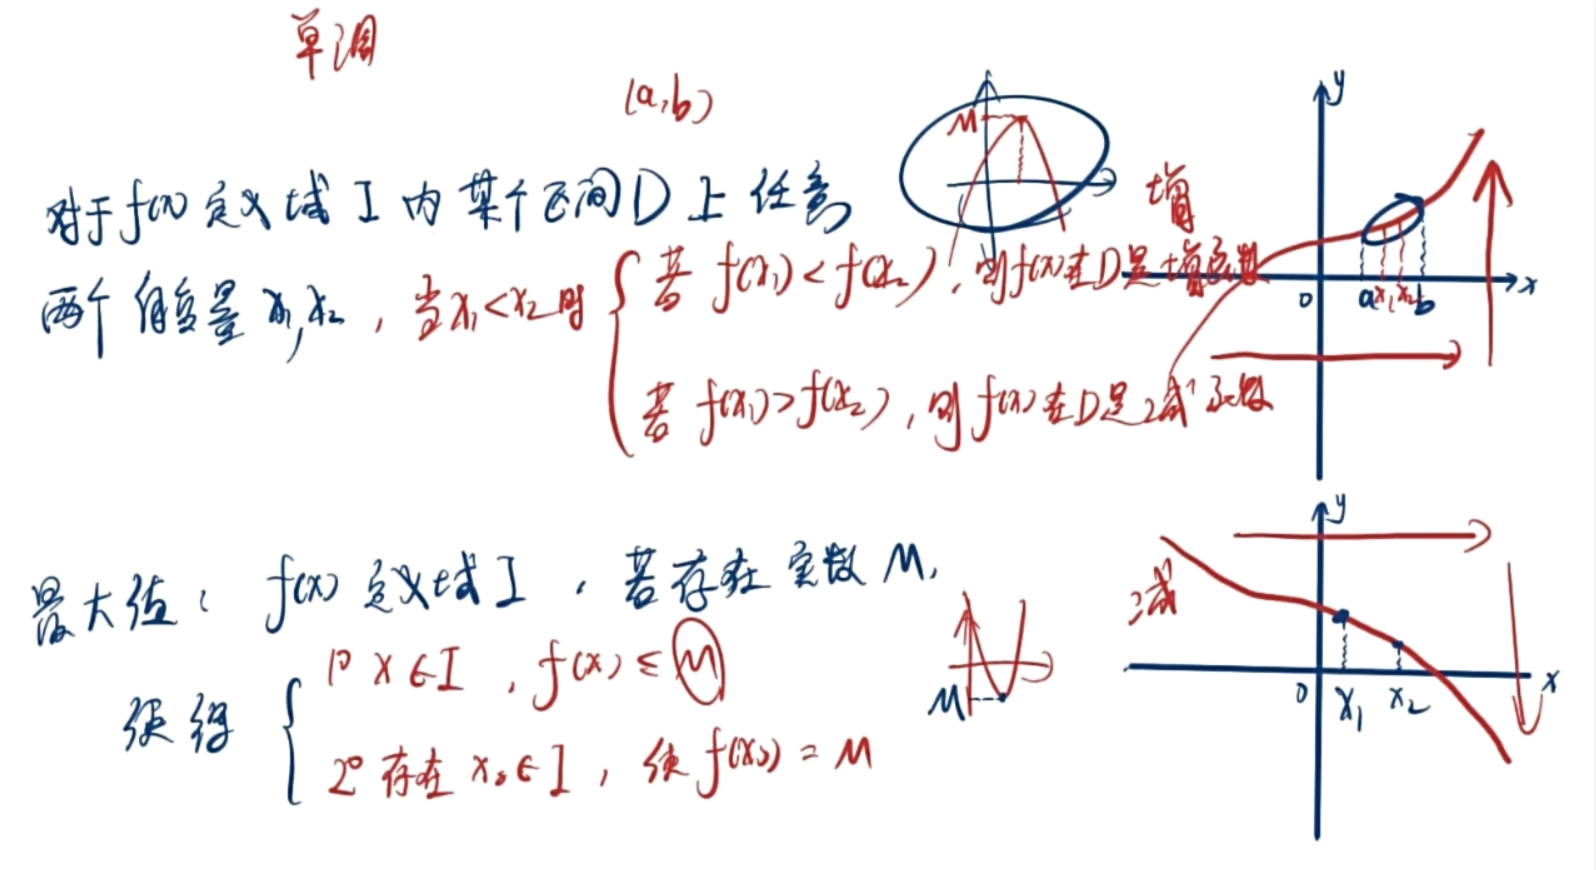 单调
(a,b)
对于f(x)定义域I内某个区间D上任意
两个自变量x₁,x₂,当x₁<x₂时
若f(x₁)<f(x₂),则f(x)在D是增函数
若f(x₁)>f(x₂),则f(x)在D是减函数
M
增
y
0 a x₁ x₂ b x
最大值:f(x)定义域I,若存在实数M,
使得
1° x∈I,f(x)≤M
2° 存在x₀∈I,使f(x₀)=M
M
减
y
0 x₁ x₂ x